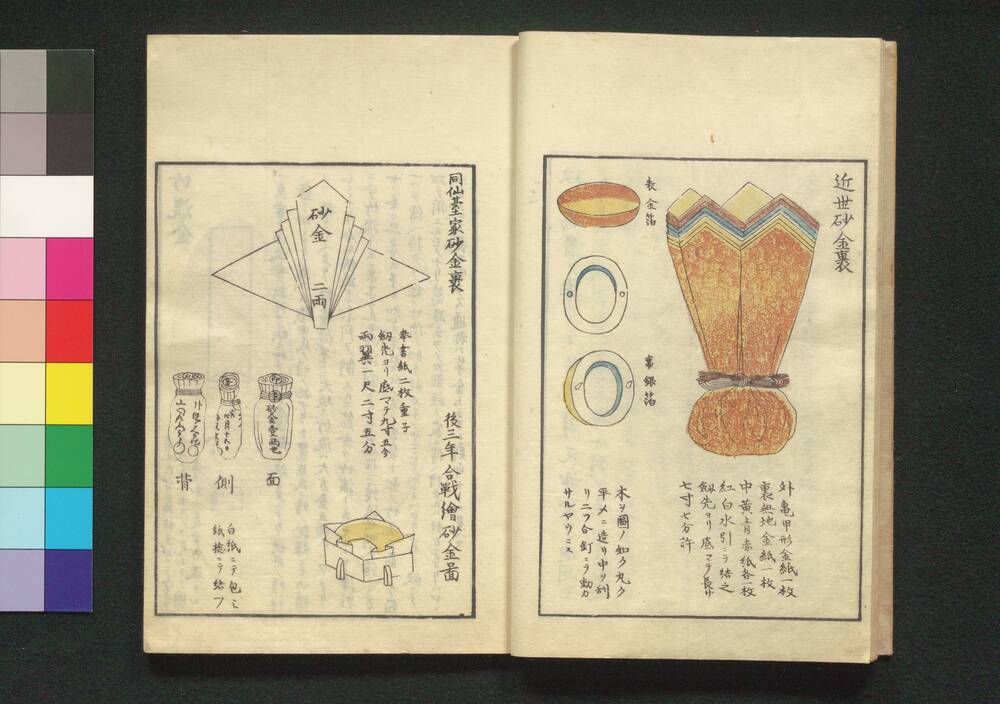 近世砂金裹
表金箔
裏銀箔
外亀甲形金紙一枚
裏無地金紙一枚
中黄青赤紙各一枚
紅白水引ニテ結之
剱先ヨリ底マテ長サ
七寸七分許
木ヲ圖ノ如ク丸ク
平メニ造リ中ヲ刳
リ二ツ合釘ニテ動カ
サルヤウニス
同仙臺家砂金裹
砂金
二両
奉書紙二枚重子
剱先ヨリ底マテ九寸五分
両翼一尺二寸五分
後三年合戰繪砂金圖
砂金壹両也
面
側
背
白紙ニテ包ミ
紙捻ニテ結フ